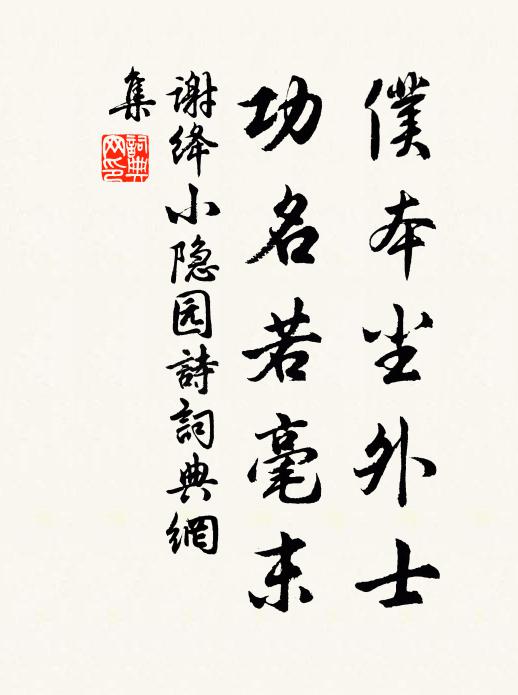 僕本尘外士
功名若毫末
谢绛小隐园詩詞典網
集
詞典
网印